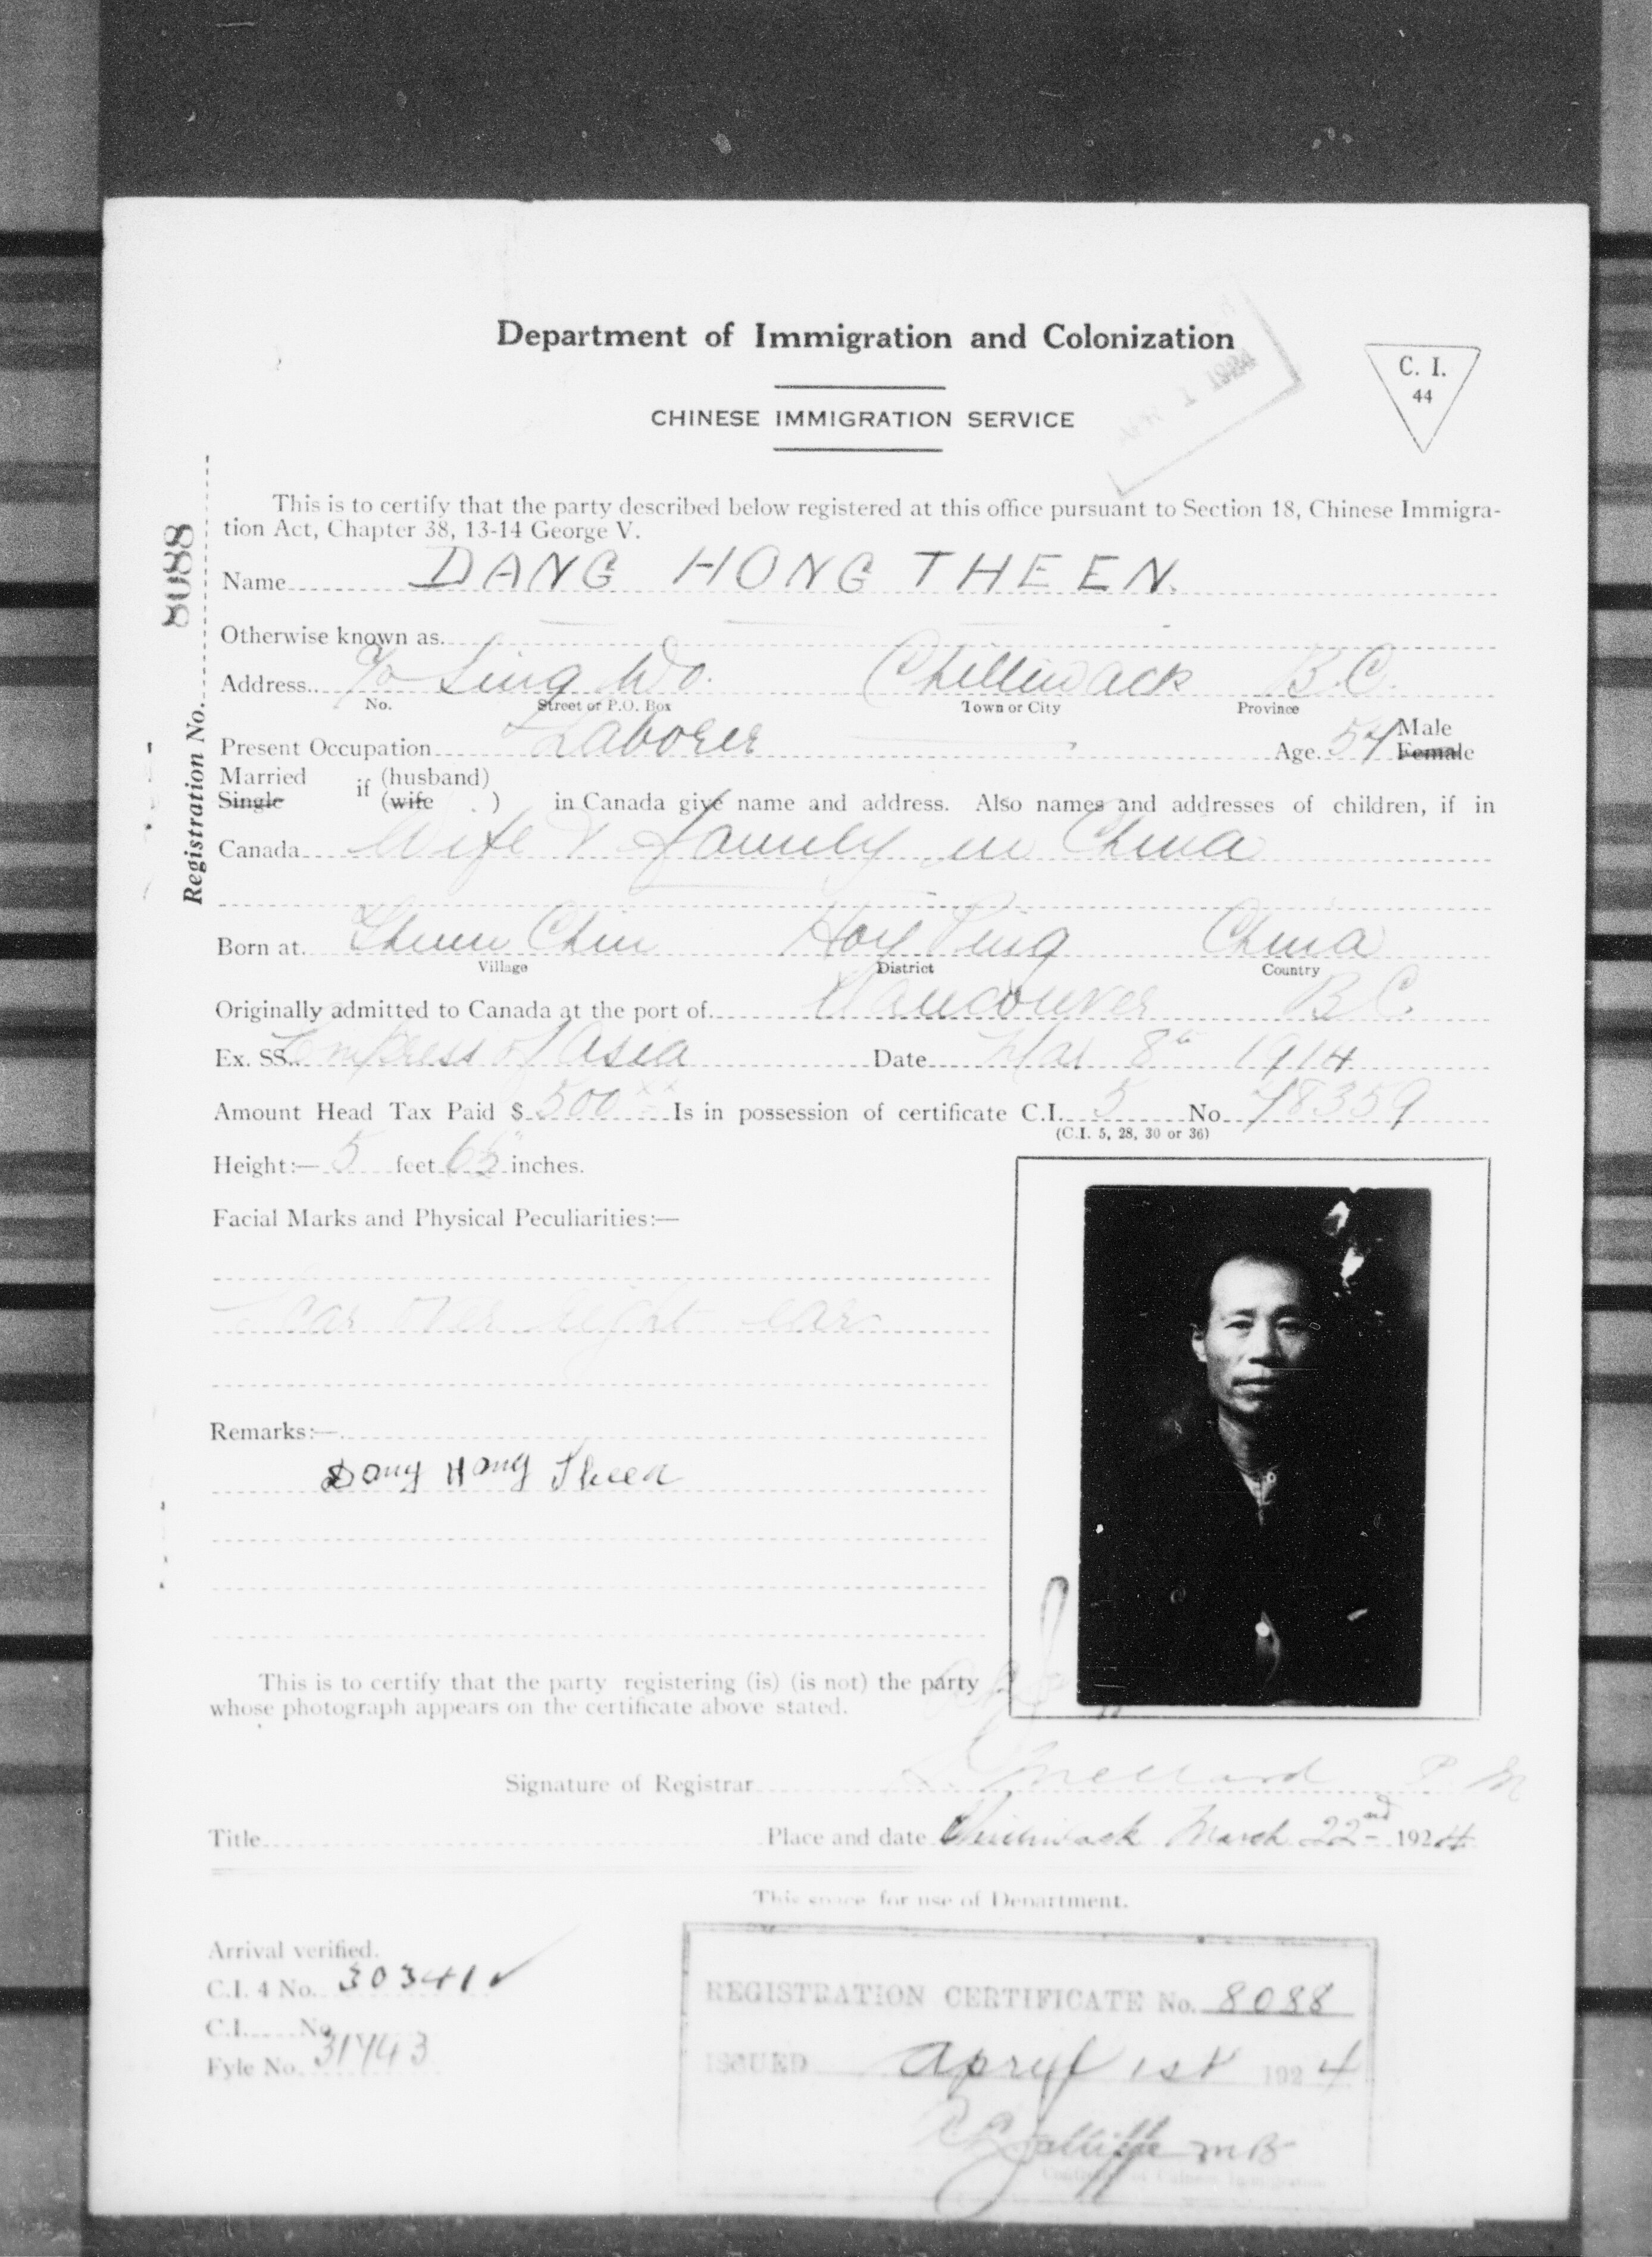 Department of Immigration and Colonization
1924
C. I.
44
CHINESE IMMIGRATION SERVICE
This is to certify that the party described below registered at this office pursuant to Section 18, Chinese Immigra-
tion Act, Chapter 38, 13-14 George V.
Registration No. 8088
Name DANG HONG THEEN.
Otherwise known as
Address c/o Sing Wo. Chilliwack B.C.
No. Street or P.O. Box Town or City Province
Present Occupation Laborer Age 54 Male
Female
Married if (husband)
Single (wife ) in Canada give name and address. Also names and addresses of children, if in
Canada Wife & family in China
Born at Chin Hoy Ping China
Village District Country
Originally admitted to Canada at the port of Vancouver B.C.
Ex. SS. Empress of Asia Date Mar 8th 1914
Amount Head Tax Paid $ 500 Is in possession of certificate C.I. 5 No 78359
(C.I. 5, 28, 30 or 36)
Height:— 5 feet 6½ inches.
Facial Marks and Physical Peculiarities:—
Scar over right ear
Remarks:—
Dong Hong Theen
This is to certify that the party registering (is) (is not) the party
whose photograph appears on the certificate above stated.
Signature of Registrar P. M
Title Place and date Chilliwack March 22nd 1924
This space for use of Department.
Arrival verified.
C.I. 4 No. 30341 ✓
C.I. No
Fyle No. 31743
REGISTRATION CERTIFICATE No. 8088
ISSUED April 1st 1924
MB
Controller of Chinese Immigration